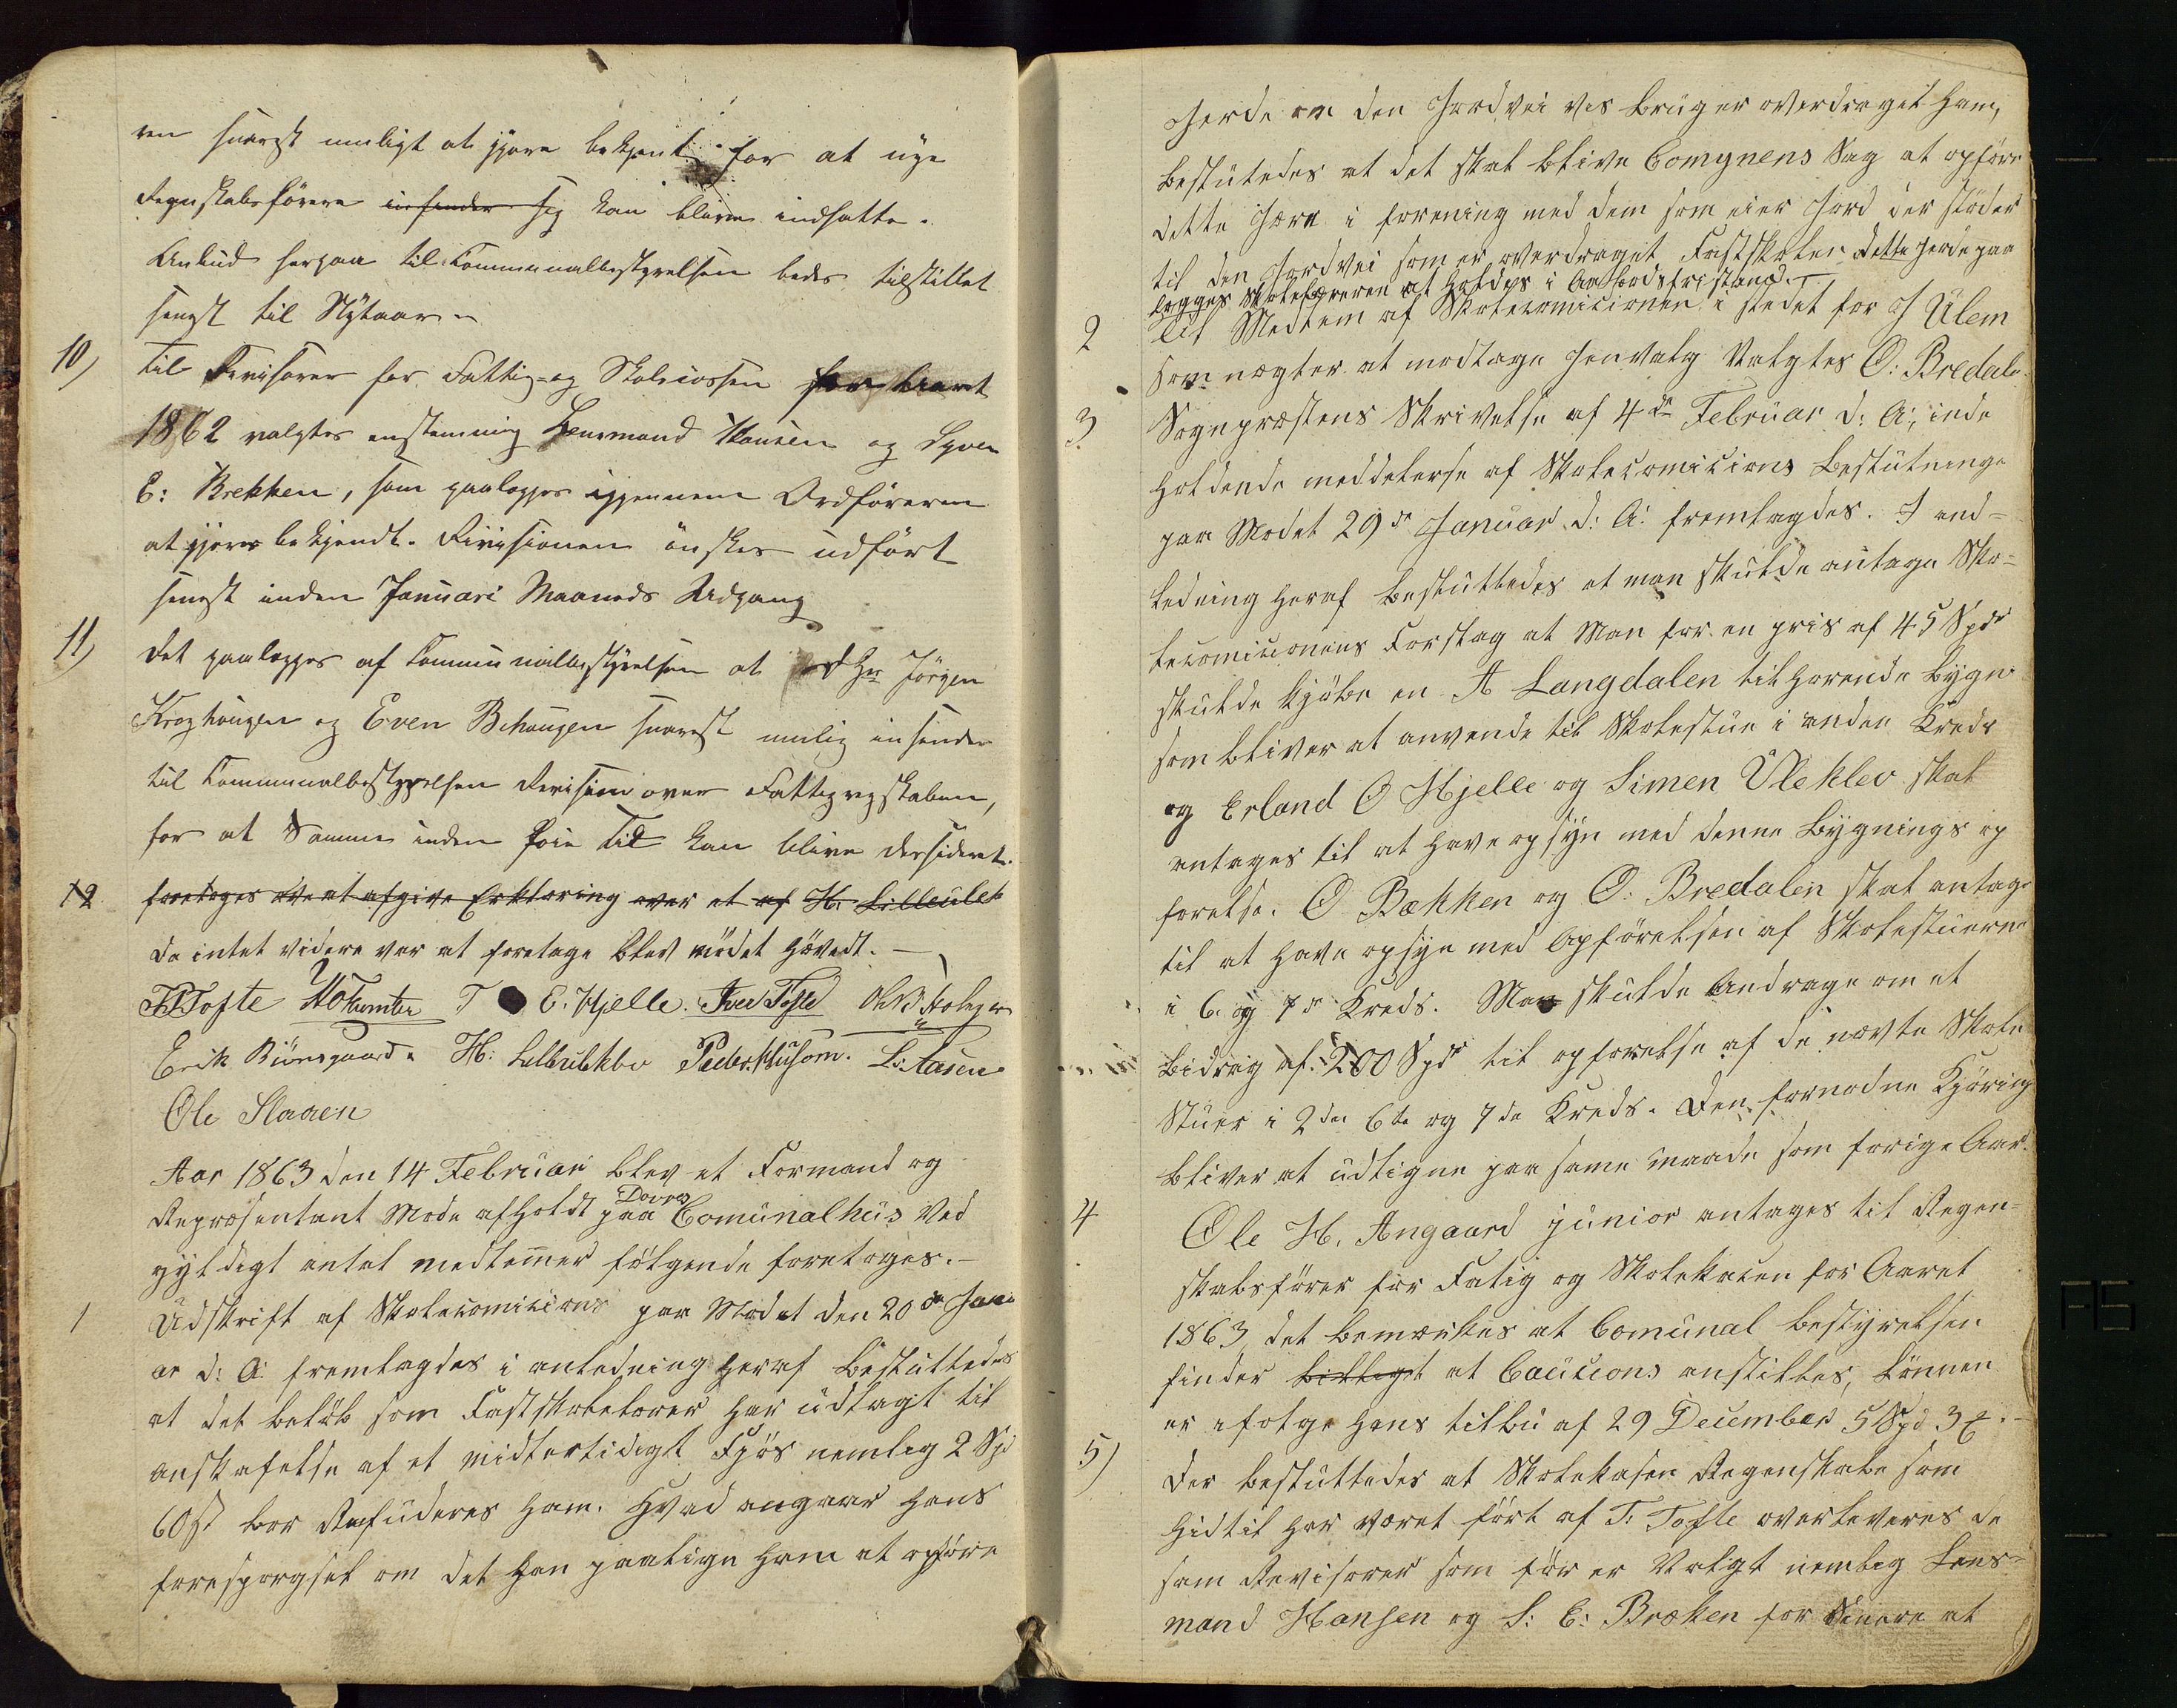 ren snarest muligt at gjøre bekjent for at nye
Regnskabsförere insender sig kan blive indsatte.
Anbud herpaa til Communalbestyrelsen bedes tilstillet
senest til Nÿtaar.
10) Til Revisorer for Fattig- og Skolecassen for Aaret
1862 valgtes enstemmig Lensmand Hansen og Syver
E: Brekken, som paalegges igjennem Ordföreren
at gjøres bekjendt. Revisionen önskes udfört
senest inden Januari Maaneds Udgang
11) Det paalegges af Communalbestyrelsen at Hr Jörgen
Kroghaugen og Even Bihaugen snarest mulig insender
til Communalbestyrelsen Revision over Fattigregskaben,
for at Samme inden föie Tid kan blive desideret.
12 foretoges at afgive Erklæring over et af H. Lilleulek
da intet videre var at foretage blev mödet hævedt. —
T. E. Hjelle. Iver Tofte
Erik Büünsgaard. H: Lilleulekleu L: Aasen
Ole Slaaen
Aar 1863 den 14 Februar blev et Formand og
Repræsentant Møde afholdt paa Dovre Comünalhüs Ved
gyldigt antal medlemer fölgende foretoges. —
1 Udskrift af Skolecomicions paa Mødet den 20de Janu
ar d: A: fremlagdes i anledning heraf besluttedes
at det belöb som Fastskolelærer har udlagt til
anskafelse af et midlertidigt Fjös nemlig 2 Spd
60 s bør Refuderes ham. Hvad angaar hans
foresporgsel om det kan paaligge ham at opföre
Gerde om den Jordvei ves brüger overdraget ham,
beslutedes at det skal blive Comynens Sag at opföre
dette Gjære i forening med dem som eier Jord der stöder
til den Jordvei som er overdraget Fastskolen. dette gerde paa
legges Skolelæreren at holdes i Aarbodsfristand. —
2 Til Medlem af Skolecomicionen i stedet for J Ulem
som nægter at modtage Jenvalg Valgtes O: Bredale
3 Sognpræstens Skrivelse af 4de Februar d: A:, inde
holdende meddelerse af Skolecomicions beslutninge
paa Mødet 29de Januar d: A: fremlagdes. I and=
ledning heraf besluttedes at man skulde antage Sko=
lecomicionens Forslag at Man for en pris af 45 Spdr
skulde kjöbe en A Langdalen tilhørende bygn
som bliver at anvende til Skolestue i anden Kreds
og Erland O Hjelle og Simen Uleklev skal
antages til at have opsÿn med denne bygnings op
førelse. O Bækken og O: Bredalen skal antage
til at have opsyn med Opförelsen af Skolestuerne
i 6. og 7de Kreds. Man skulde Andrage om et
bidrag af 200 Spdr til opførelse af de nævte Skole
Stuer i 2den 6te og 7de Kreds. Den fornødne Kjöring
bliver at udligne paa same maade som forige Aar.
4 Ole H. Angaard junior antages til Regen=
skabsförer for Fatig og Skolekasen for Aaret
1863, det bemærkes at Comunal bestyrelsen
finder billigt at Caucions anstilles, Lönnen
er ifølge hans tilbu af 29 December 5 Spd 3 .-
5) Der besluttedes at Skolekasen Regenskabe som
hidtil har været fört af T: Tofte overleveres de
sam Revisorer som för er Valgt nemlig Lens=
mand Hansen og S: E: Bræken for Senere at